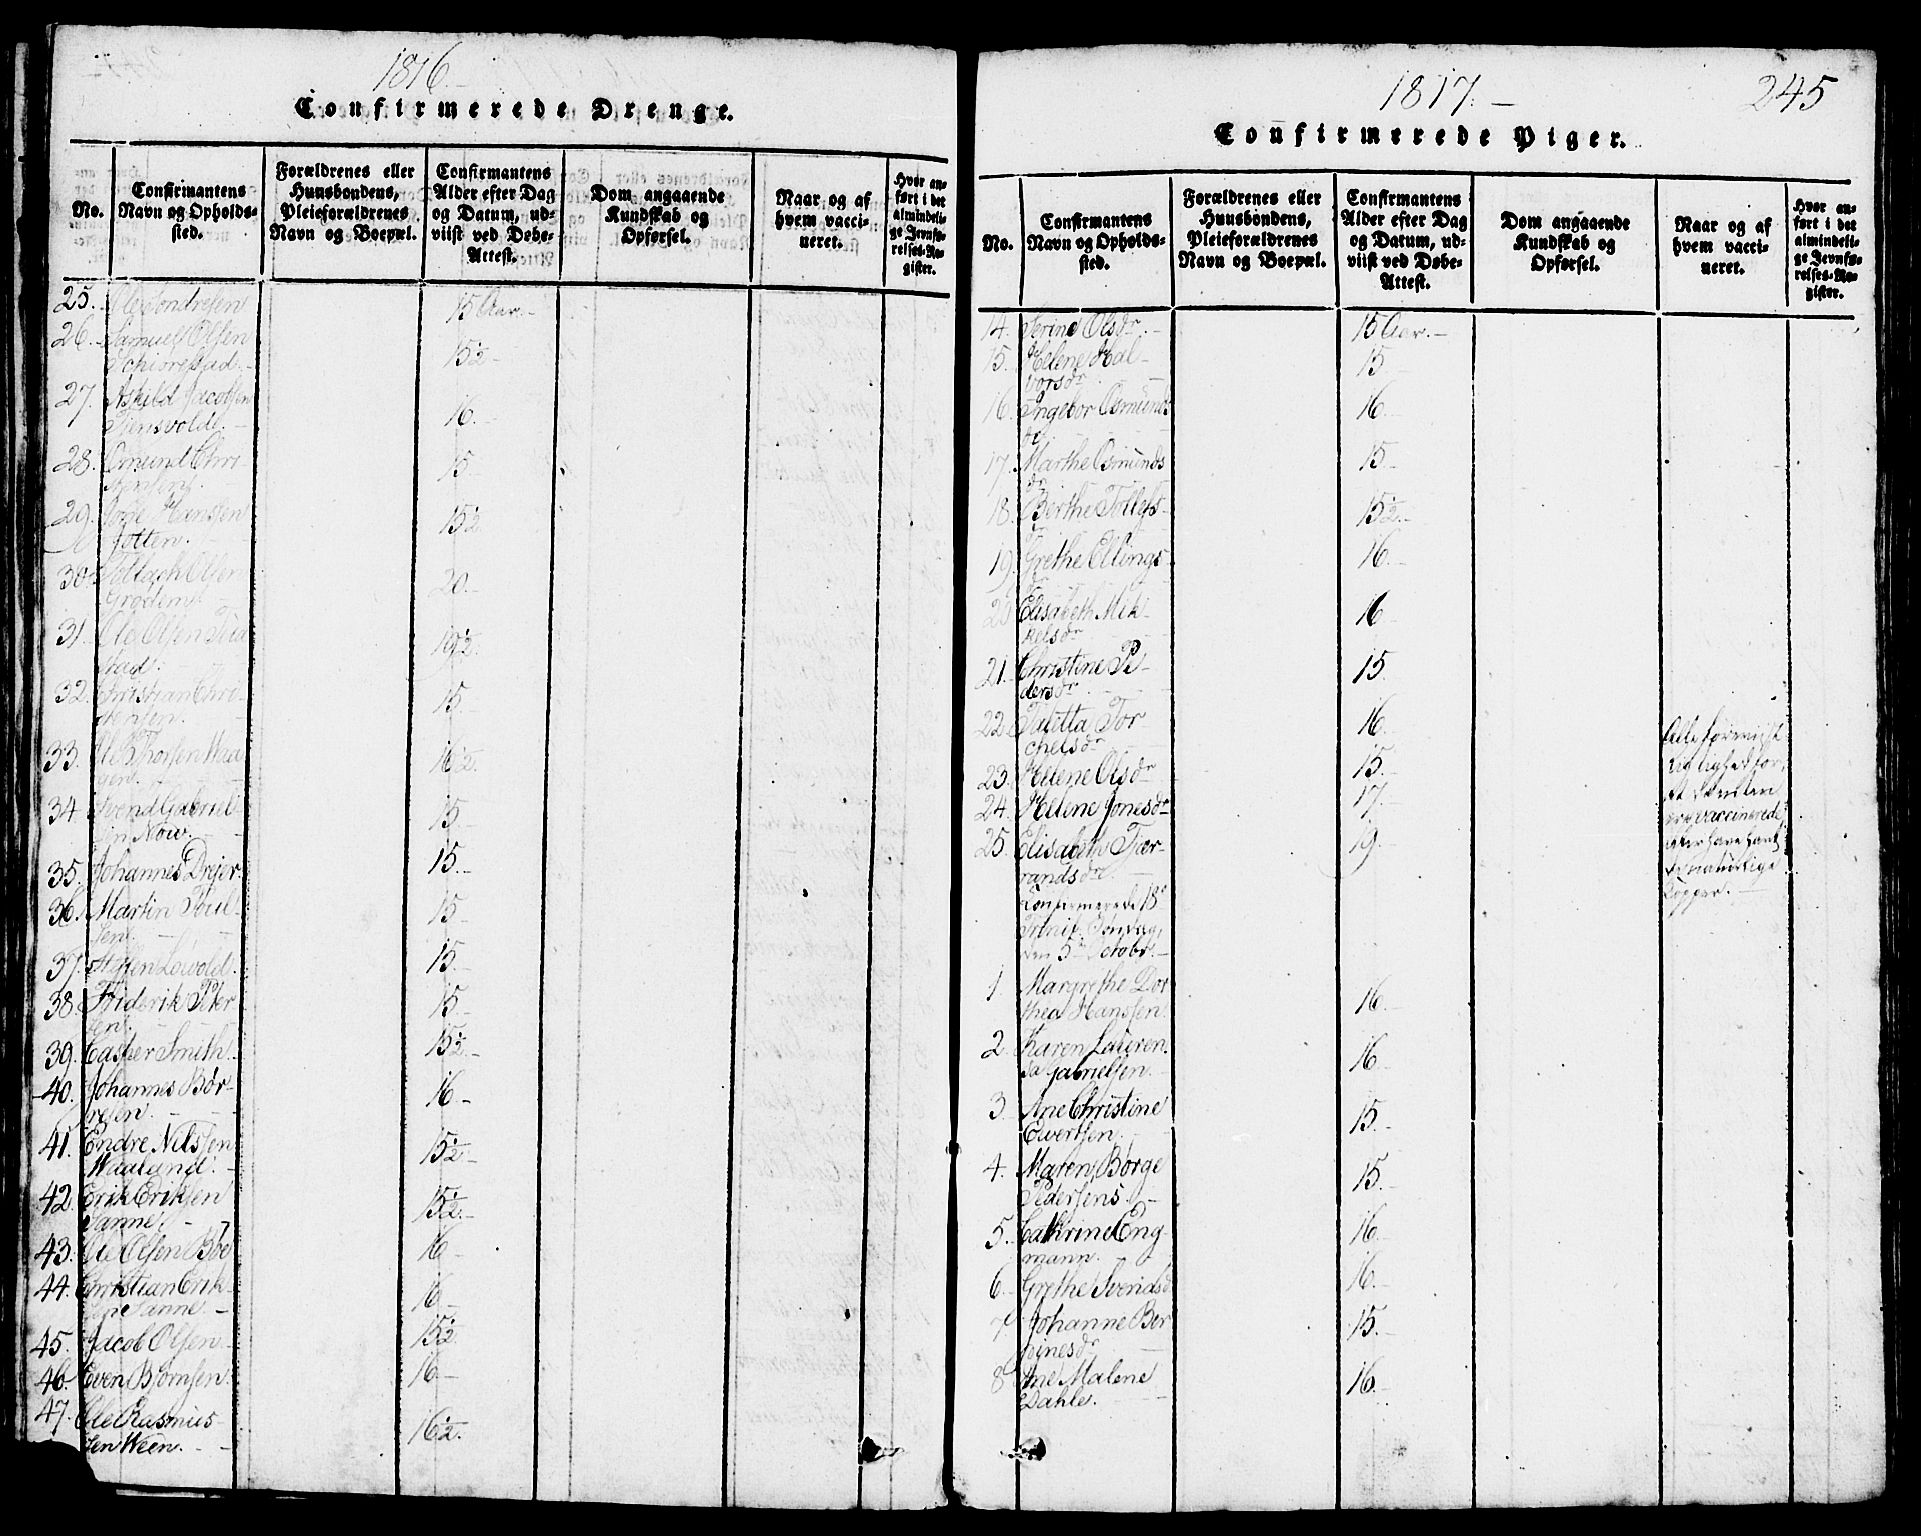 1816.
Confirmerede Drenge.
No.
Confirmantens
Navn og Opholds-
sted.
Forældrenes eller
Huusbondens,
Pleieforældrenes
Navn og Boepæl.
Confirmantens
Alder efter Dag
og Datum, ud-
viist ved Døbe-
Attest.
Dom angaaende
Kundskab og
Opførsel.
Naar og af
hvem vacci-
neret.
Hvor an-
ført i det
almindeli-
ge Jevnfø-
relses-Re-
gister.
25. Ole Endresen 15 Aar.-
26. Samuel Olsen
Schiorestad. 15½
27. Askild Jacobsen
Stensvold. 16.
28. Omund Chri-
stensen. 15
29. Tore Hanssen
Jotten. 15½
30. Tollach Olsen
Grodem. 20.
31. Ole Olsen
stad. 19½.
32. Christian Chri-
stensen. 15
33. Ole Thorsen Waa-
gen. 16½
34 Svend Gabriel-
sen Now. 15
35. Johannes Drejer. 15.-
36. Martin Poul-
sen. 15
37. Steffen Lowold. 15.
38. Friderik Peter-
sen. 15
39. Casper Smith. 15½-
40. Johannes Bør-
resen. 16-
41. Endre Nelssen
Waaland. 15½-
42. Erik Eriksen
Sanne. 15½.-
43. Ole Olsen Bøe 16-
44. Christian Erik-
sen Sanne. 16-
45. Jacob Olsen 15½
46. Even Bjørnsen. 16-
47. Ole Rasmus
sen Ween. 16½.
1817.- 245
Confirmerede Piger.
No.
Confirmantens
Navn og Opholds-
sted.
Forældrenes eller
Huusbondens,
Pleieforældrenes
Navn og Boepæl.
Confirmantens
Alder efter Dag
og Datum, ud-
viist ved Døbe-
Attest.
Dom angaaende
Kundskab og
Opførsel.
Naar og af
hvem vacci-
neret.
Hvor an-
ført i det
almindeli-
ge Jevnfø-
relses-Re-
gister.
14. Serine Olsdr. 15 Aar.-
15. Helene Hal-
vorsdr. 15
16. Ingebor Osmunds
dr 16
17. Marthe Osmunds
dr 15
18. Berthe Tollefs-
dr 15½.
19. Grethe Ellings-
dr 16.
20 Elisabeth Mik-
kelsdr 16
21. Christine Pe-
dersdr 15.
22. Taletta Tor-
chelsdr 16.
23. Helene Olsdr 15.
24. Helene Jonesdr 17.
25. Elisabeth Tjær-
randsdr. 19.
Alle foreviist
for,
at de enten
ere vaccinerede
eller have havt
de naturlige
Kopper.-
Confirmerede 18de
Trinit. Søndag,
den 5te October.-
1. Margrethe Dor
thea Hanssen. 16.
2. Karen Lauren
sa Gabrielsen. 16
3. Ane Christine
Ewertsen. 15.
4. Maren Børge
Pedersens. 15.
5. Cathrine Eng-
mann. 16.
6. Grethe Svendsd 16.
7 Johanne Ber
ginesdr. 15.
8 Ane Malene
Dahle. 16.